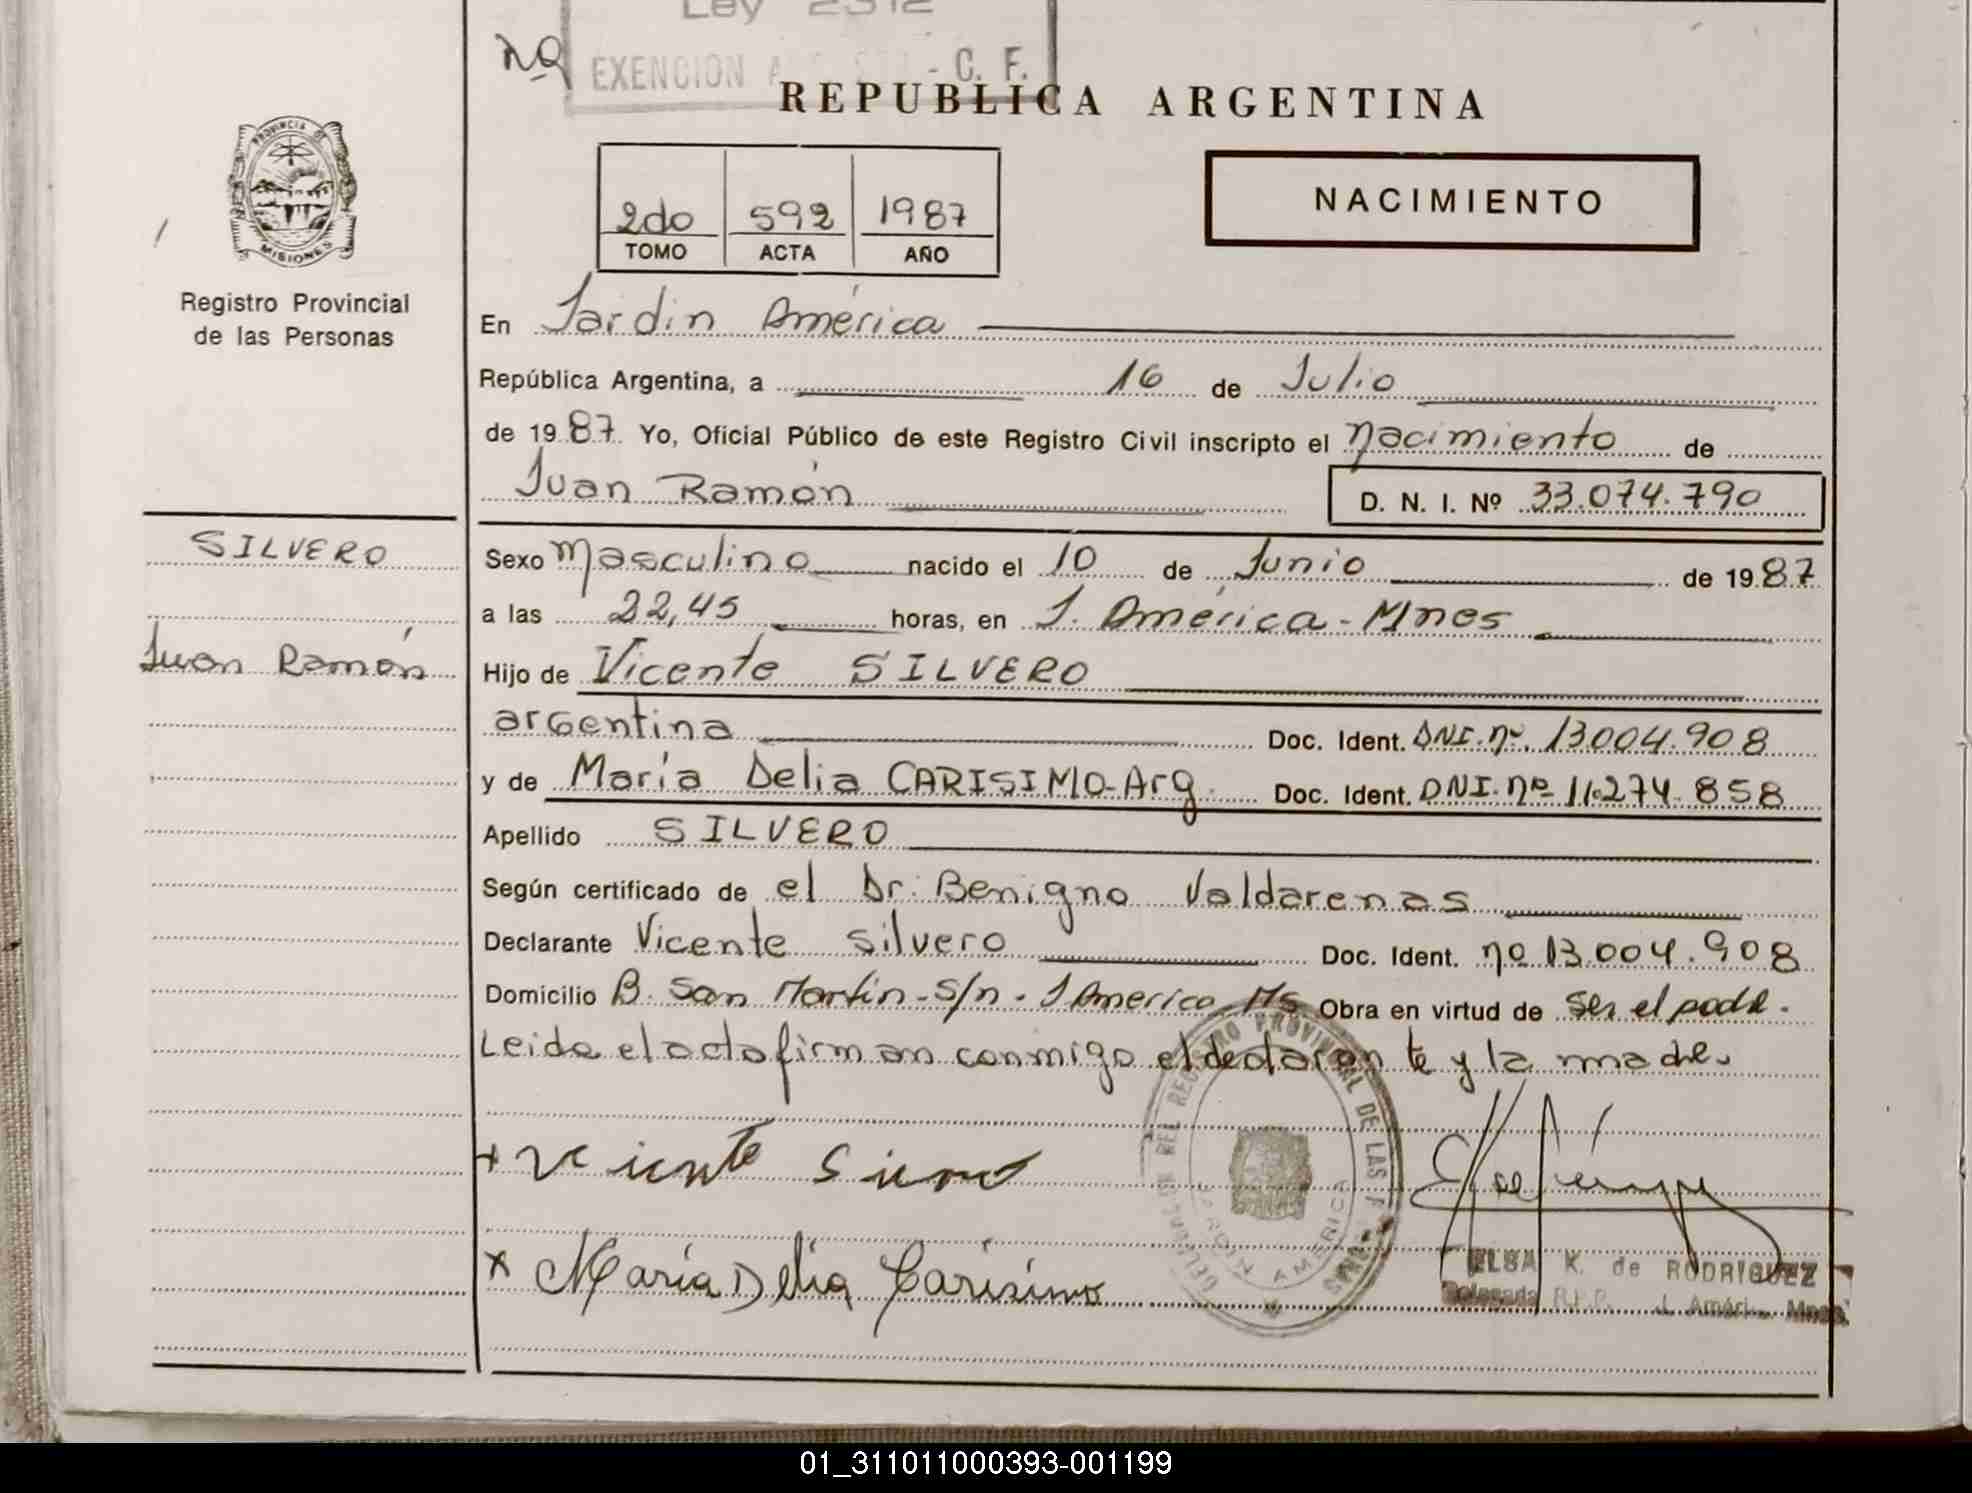 Ley 2312
EXENCION - C. F.
Nº
REPUBLICA ARGENTINA
PROVINCIA DE MISIONES
Registro Provincial
de las Personas
2do 592 1987
TOMO ACTA AÑO
NACIMIENTO
En Jardin América
República Argentina, a 16 de Julio
de 1987 Yo, Oficial Público de este Registro Civil inscripto el Nacimiento de
Juan Ramón D. N. I. Nº 33.074.790
SILVERO
Juan Ramón
Sexo Masculino nacido el 10 de Junio de 1987
a las 22,45 horas, en J. América - Mnes
Hijo de Vicente SILVERO
argentina Doc. Ident. DNI. nº. 13004.908
y de María Delia CARISIMO-Arg. Doc. Ident. DNI. nº 11.274.858
Apellido SILVERO
Según certificado de el Dr. Benigno Valdarenas
Declarante Vicente Silvero Doc. Ident. nº 13.004.908
Domicilio B. San Martin - S/n - J America Ms Obra en virtud de ser el padre.
Leida el acta firman conmigo el declarante y la madre.
DELEGACION DEL REGISTRO PROVINCIAL DE LAS PERSONAS
JARDIN AMERICA
+ Vicente
x María Delia Carísimo
ELSA K. de RODRIGUEZ
Delegada R.P.P. J. Améri Mnes.
01_311011000393-001199